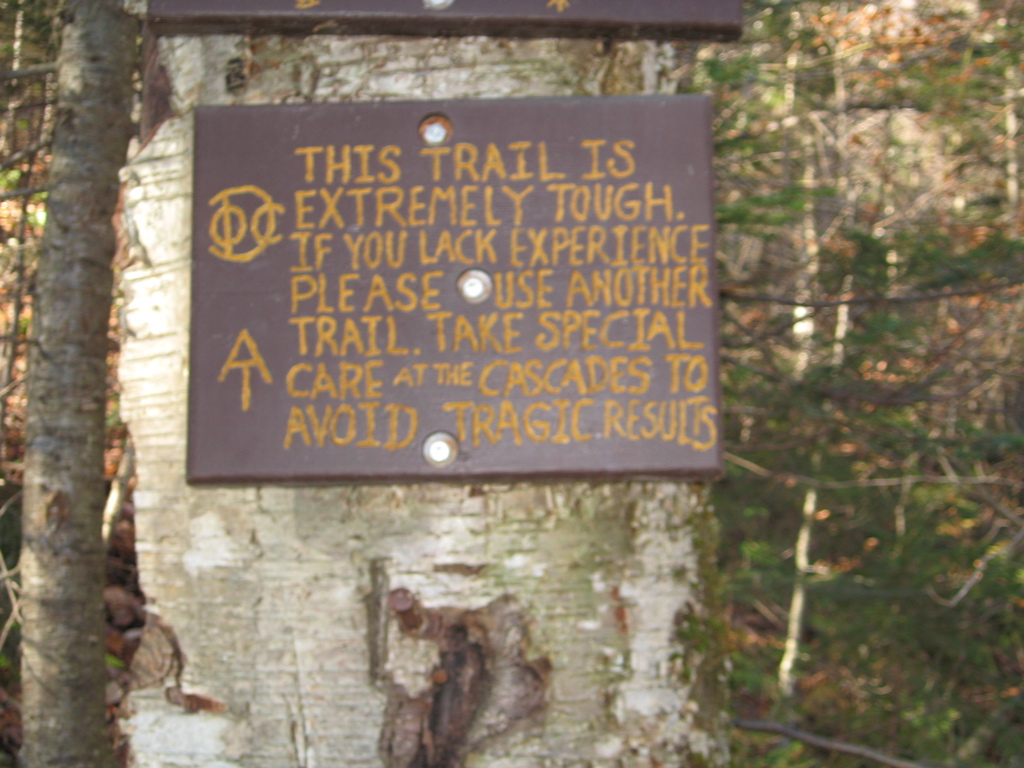 THIS TRAIL IS
EXTREMELY TOUGH.
IF YOU LACK EXPERIENCE
PLEASE USE ANOTHER
TRAIL. TAKE SPECIAL
CARE AT THE CASCADES TO
AVOID TRAGIC RESULTS
DOC
AT